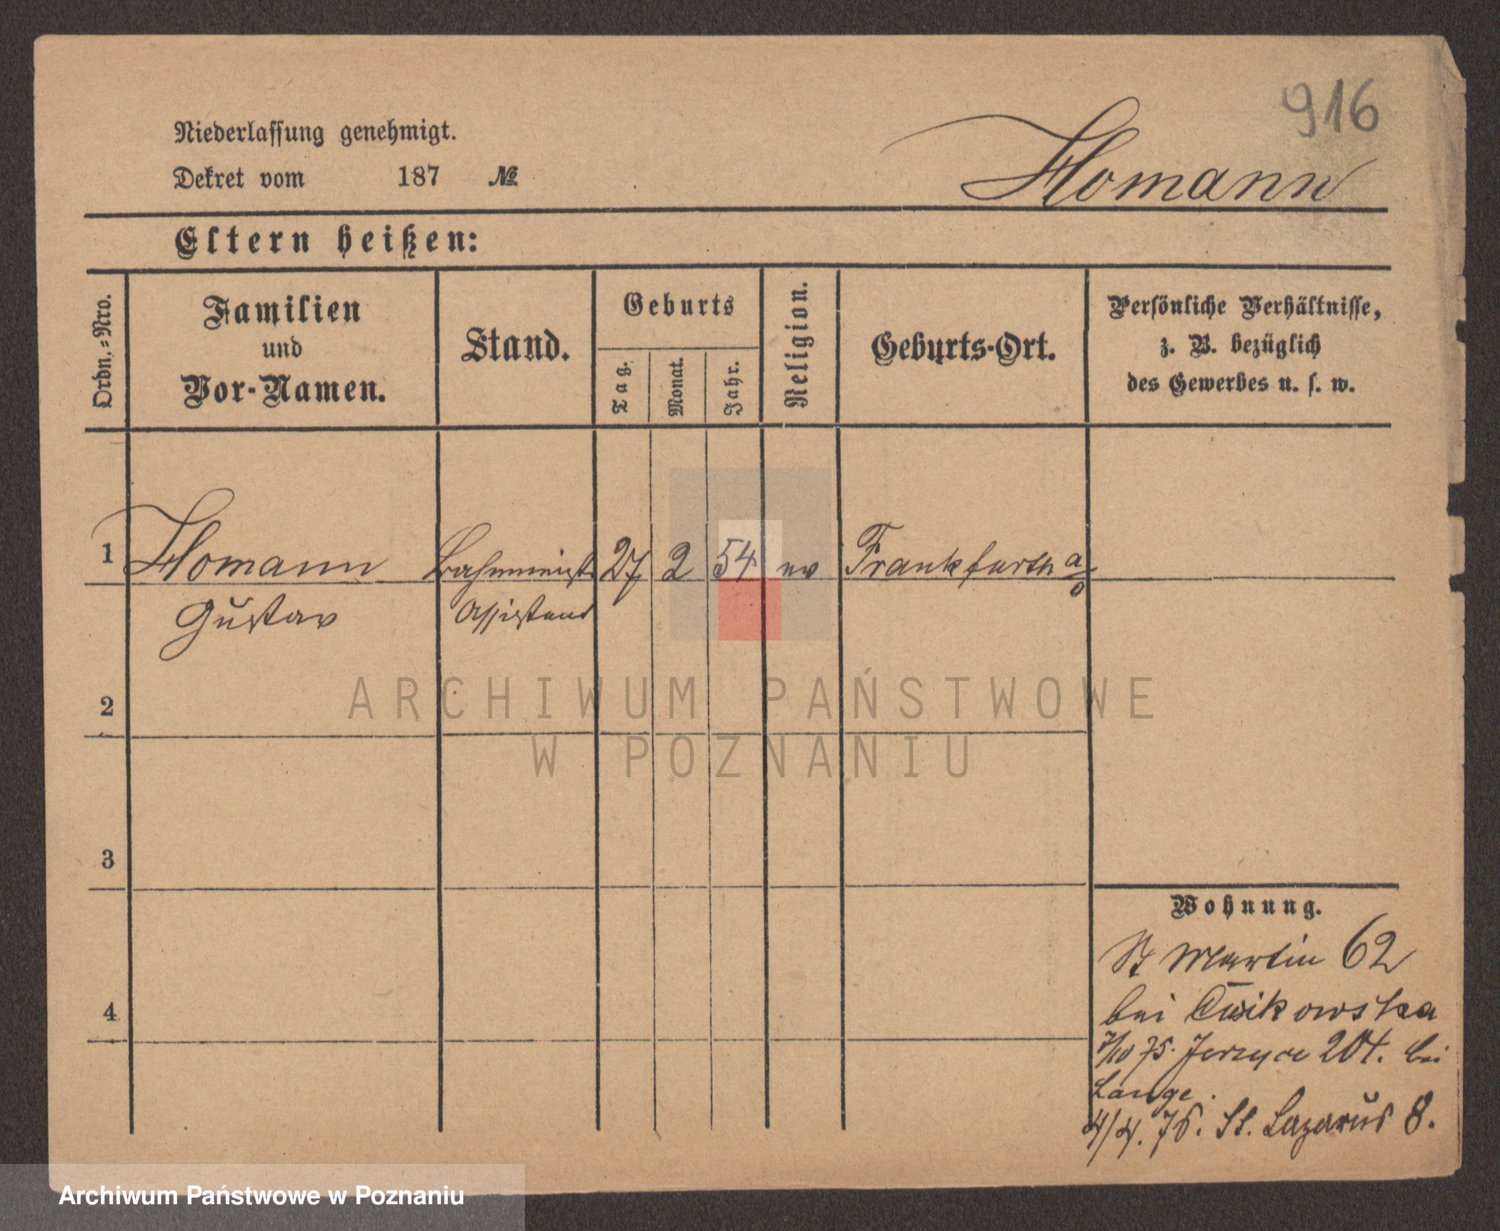 916
Niederlassung genehmigt.
Dekret vom 187 №
Homann
Eltern heißen:
Ordn.-Nro.
Familien
und
Vor-Namen.
Stand.
Geburts
Tag.
Monat.
Jahr.
Religion.
Geburts-Ort.
Persönliche Verhältnisse,
z. B. bezüglich
des Gewerbes u. s. w.
1 Homann 27 2 54 ev Frankfurth a/o
Gustav Assistent
2
3
4
Wohnung.
St Martin 62
bei Cwikowska
7/10 75. Jerzyce 204. bei
Lange.
4/4. 76. St. Lazarus 8.
ARCHIWUM PAŃSTWOWE
W POZNANIU
Archiwum Państwowe w Poznaniu